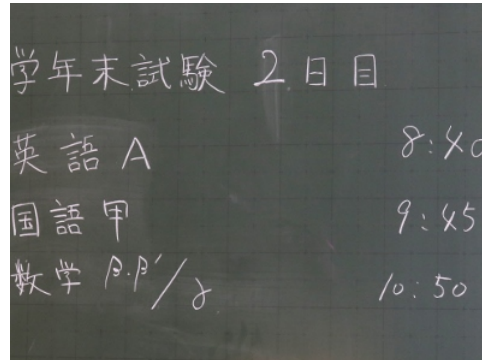 学年末試験 2日目
英語 A 8:40
国語甲 9:45
数学 β.β'/γ 10:50